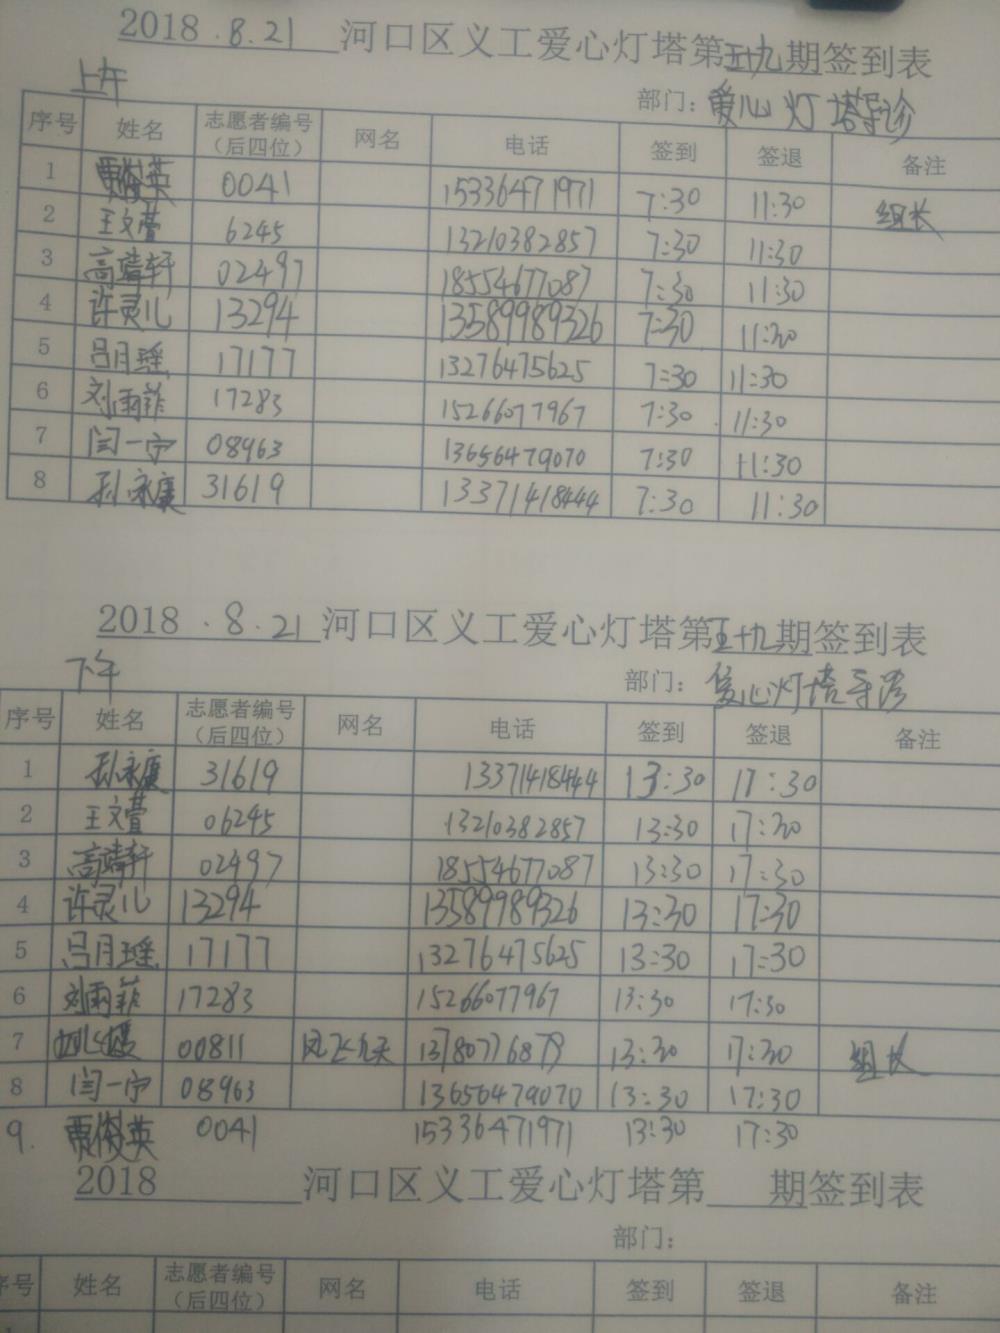 2018.8.21 河口区义工爱心灯塔第五十九期签到表
上午
部门：爱心灯塔导诊
序号 姓名 志愿者编号（后四位） 网名 电话 签到 签退 备注
1 贾俊英 0041 15336471971 7:30 11:30 组长
2 王文萱 6245 13210382857 7:30 11:30
3 高靖轩 02497 18554677087 7:30 11:30
4 许灵儿 13294 13589989326 7:30 11:30
5 吕月瑶 17177 13276475625 7:30 11:30
6 刘雨菲 17283 15266077967 7:30 11:30
7 闫一宁 08963 13656479070 7:30 11:30
8 孙永康 31619 13371418444 7:30 11:30
2018.8.21 河口区义工爱心灯塔第五十九期签到表
下午
部门：爱心灯塔导诊
序号 姓名 志愿者编号（后四位） 网名 电话 签到 签退 备注
1 孙永康 31619 13371418444 13:30 17:30
2 王文萱 06245 13210382857 13:30 17:30
3 高靖轩 02497 18554677087 13:30 17:30
4 许灵儿 13294 13589989326 13:30 17:30
5 吕月瑶 17177 13276475625 13:30 17:30
6 刘雨菲 17283 15266077967 13:30 17:30
7 00811 凤飞九天 13780776879 13:30 17:30 组长
8 闫一宁 08963 13656479070 13:30 17:30
9. 贾俊英 0041 15336471971 13:30 17:30
2018 河口区义工爱心灯塔第 期签到表
部门：
序号 姓名 志愿者编号（后四位） 网名 电话 签到 签退 备注